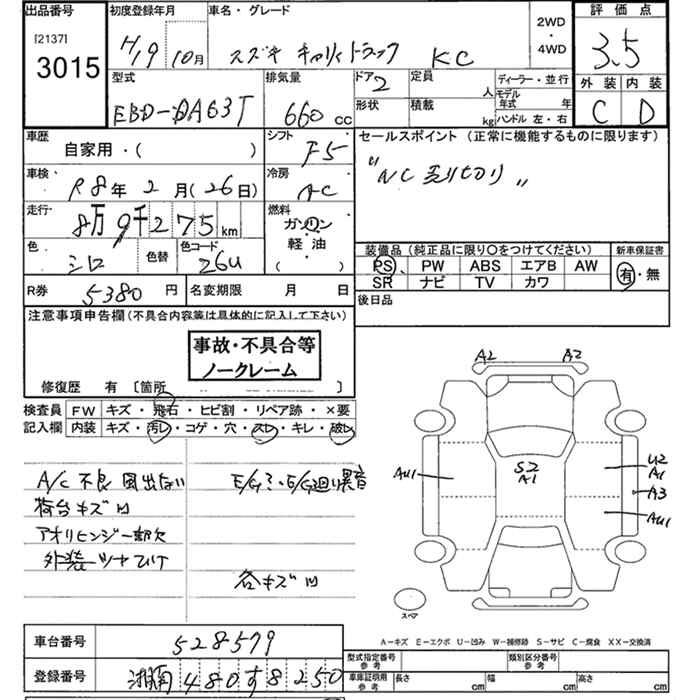 出品番号
[2137]
3015
初度登録年月
H19 10月
車名・グレード
スズキ キャリィトラック KC
2WD
・
4WD
評価点
3.5
外装 内装
C D
型式
EBD-DA63T
排気量
660 cc
ドア 2
定員 人
形状
積載 kg
ディーラー・並行
モデル年式 年
ハンドル 左・右
車歴
自家用・( )
シフト
F5
セールスポイント (正常に機能するものに限ります)
"NC売り切り"
車検・
R8年 2月(26日)
冷房
AC
走行・
8万9千275 km
燃料
ガソリン
・
軽油
( )
色
シロ
色替
色コード
26U
装備品(純正品に限り○をつけてください)
PS PW ABS エアB AW
SR ナビ TV カワ
新車保証書
有・無
R券 5380 円
名変期限 月 日
後日品
注意事項申告欄(不具合内容等は具体的に記入して下さい)
事故・不具合等
ノークレーム
修復歴 有 〔箇所 〕
検査員 FW キズ・飛石・ヒビ割・リペア跡・×要
記入欄 内装 キズ・汚レ・コゲ・穴・スレ・キレ・破レ
A/C不良 風出ない
荷台キズ凹
アオリヒンジ一部欠
外装ツヤひけ
E/G廻り異音
各キズ凹
A2 A2
AU1
S2
A1
U2
A1
A3
AU1
スペア
A-キズ E-エクボ U-凹み W-補修跡 S-サビ C-腐食 XX-交換済
車台番号 528579
登録番号 湘南 480 す 8250
型式指定番号
参考
類別区分番号
参考
車庫証明用
参考
長さ cm
幅 cm
高さ cm